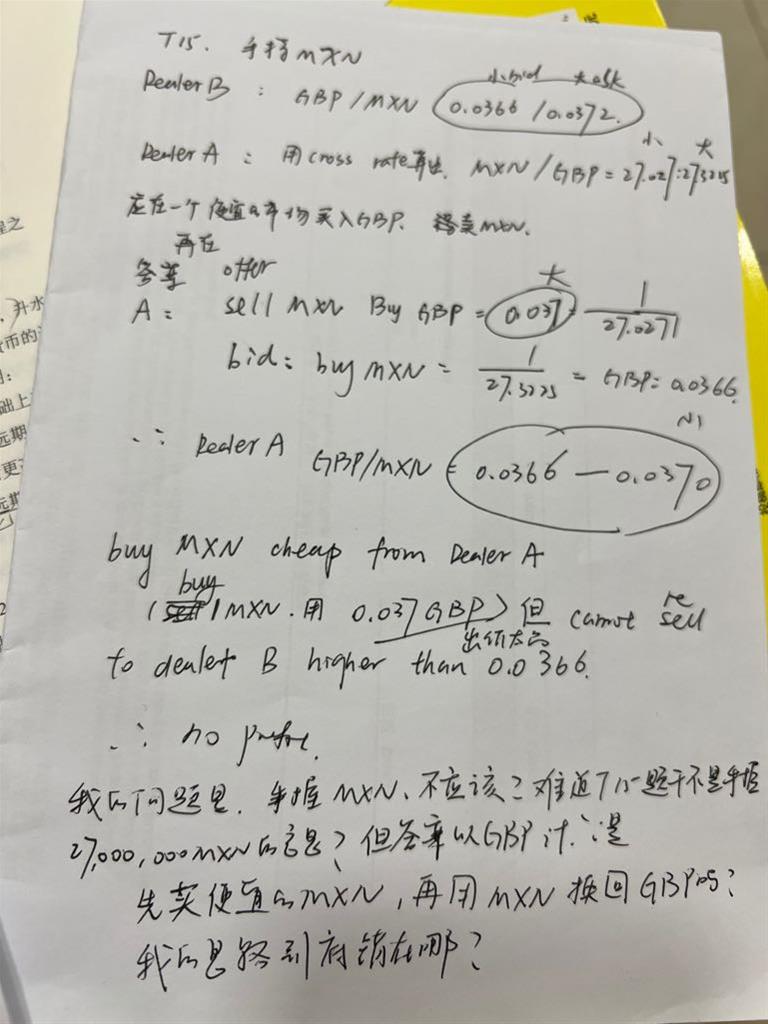 T15. 手持MXN
小bid 大ask
Dealer B : GBP/MXN 0.0366 / 0.0372.
小 大
Dealer A : 用cross rate算出. MXN/GBP = 27.027:27.3225
应在一个便宜的市场买入GBP. 卖MXN.
再在
答案 offer 大
A: sell MXN Buy GBP = 0.037 = 1/27.0271
bid: buy MXN = 1/27.3225 = GBP: 0.0366.
小
∴ Dealer A GBP/MXN = 0.0366 — 0.0370
buy MXN cheap from Dealer A
buy
( MXN. 用 0.037 GBP ) 但 cannot resell
出价太高
to dealer B higher than 0.0366.
∴ no profit.
我的问题是. 手握MXN、不应该? 难道T15题干不是手握
27,000,000MXN的意思? 但答案以GBP计. 是
先买便宜的MXN, 再用MXN换回GBP吗?
我的思路到底错在哪?